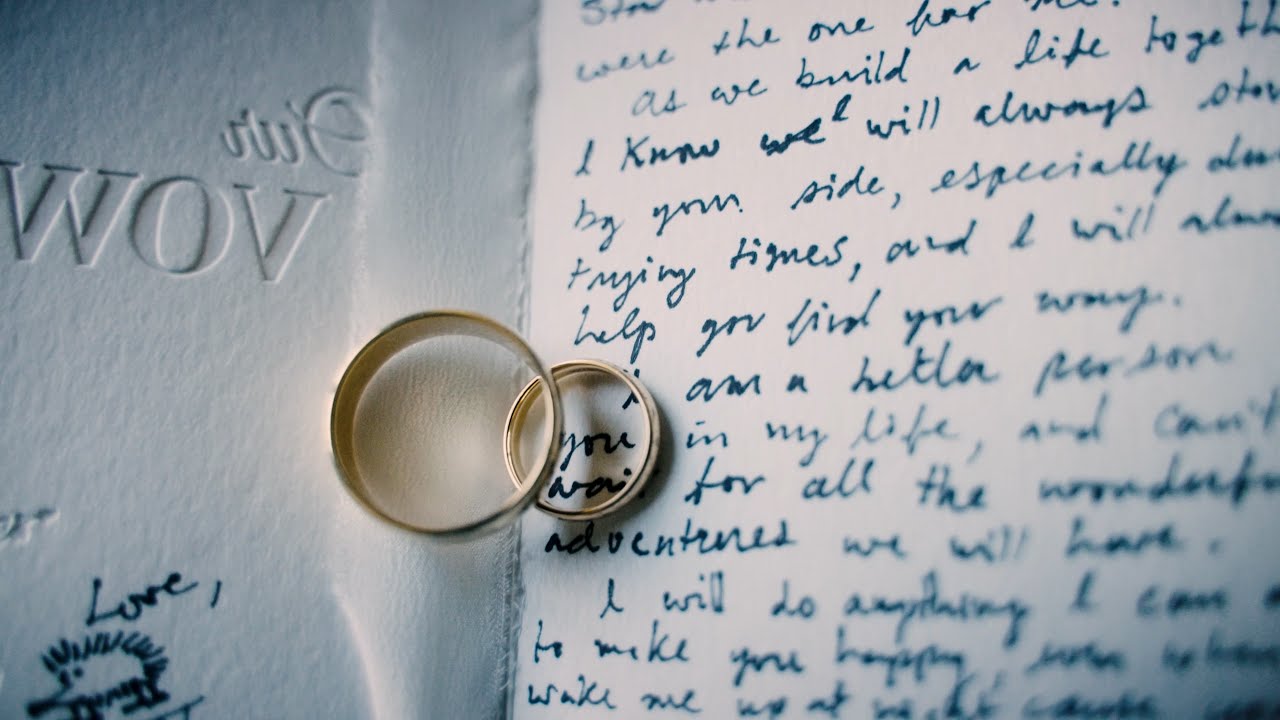 Our
VOW
Love,
were the one for me.
As we build a life togeth
I know we I will always
by your side, especially
trying times, and I will alwa
help you find your way.
I am a better person
you in my life, and can't
wait for all the wonderfu
adventures we will have.
I will do anything I can
to make you happy, even when
wake me up at night cause